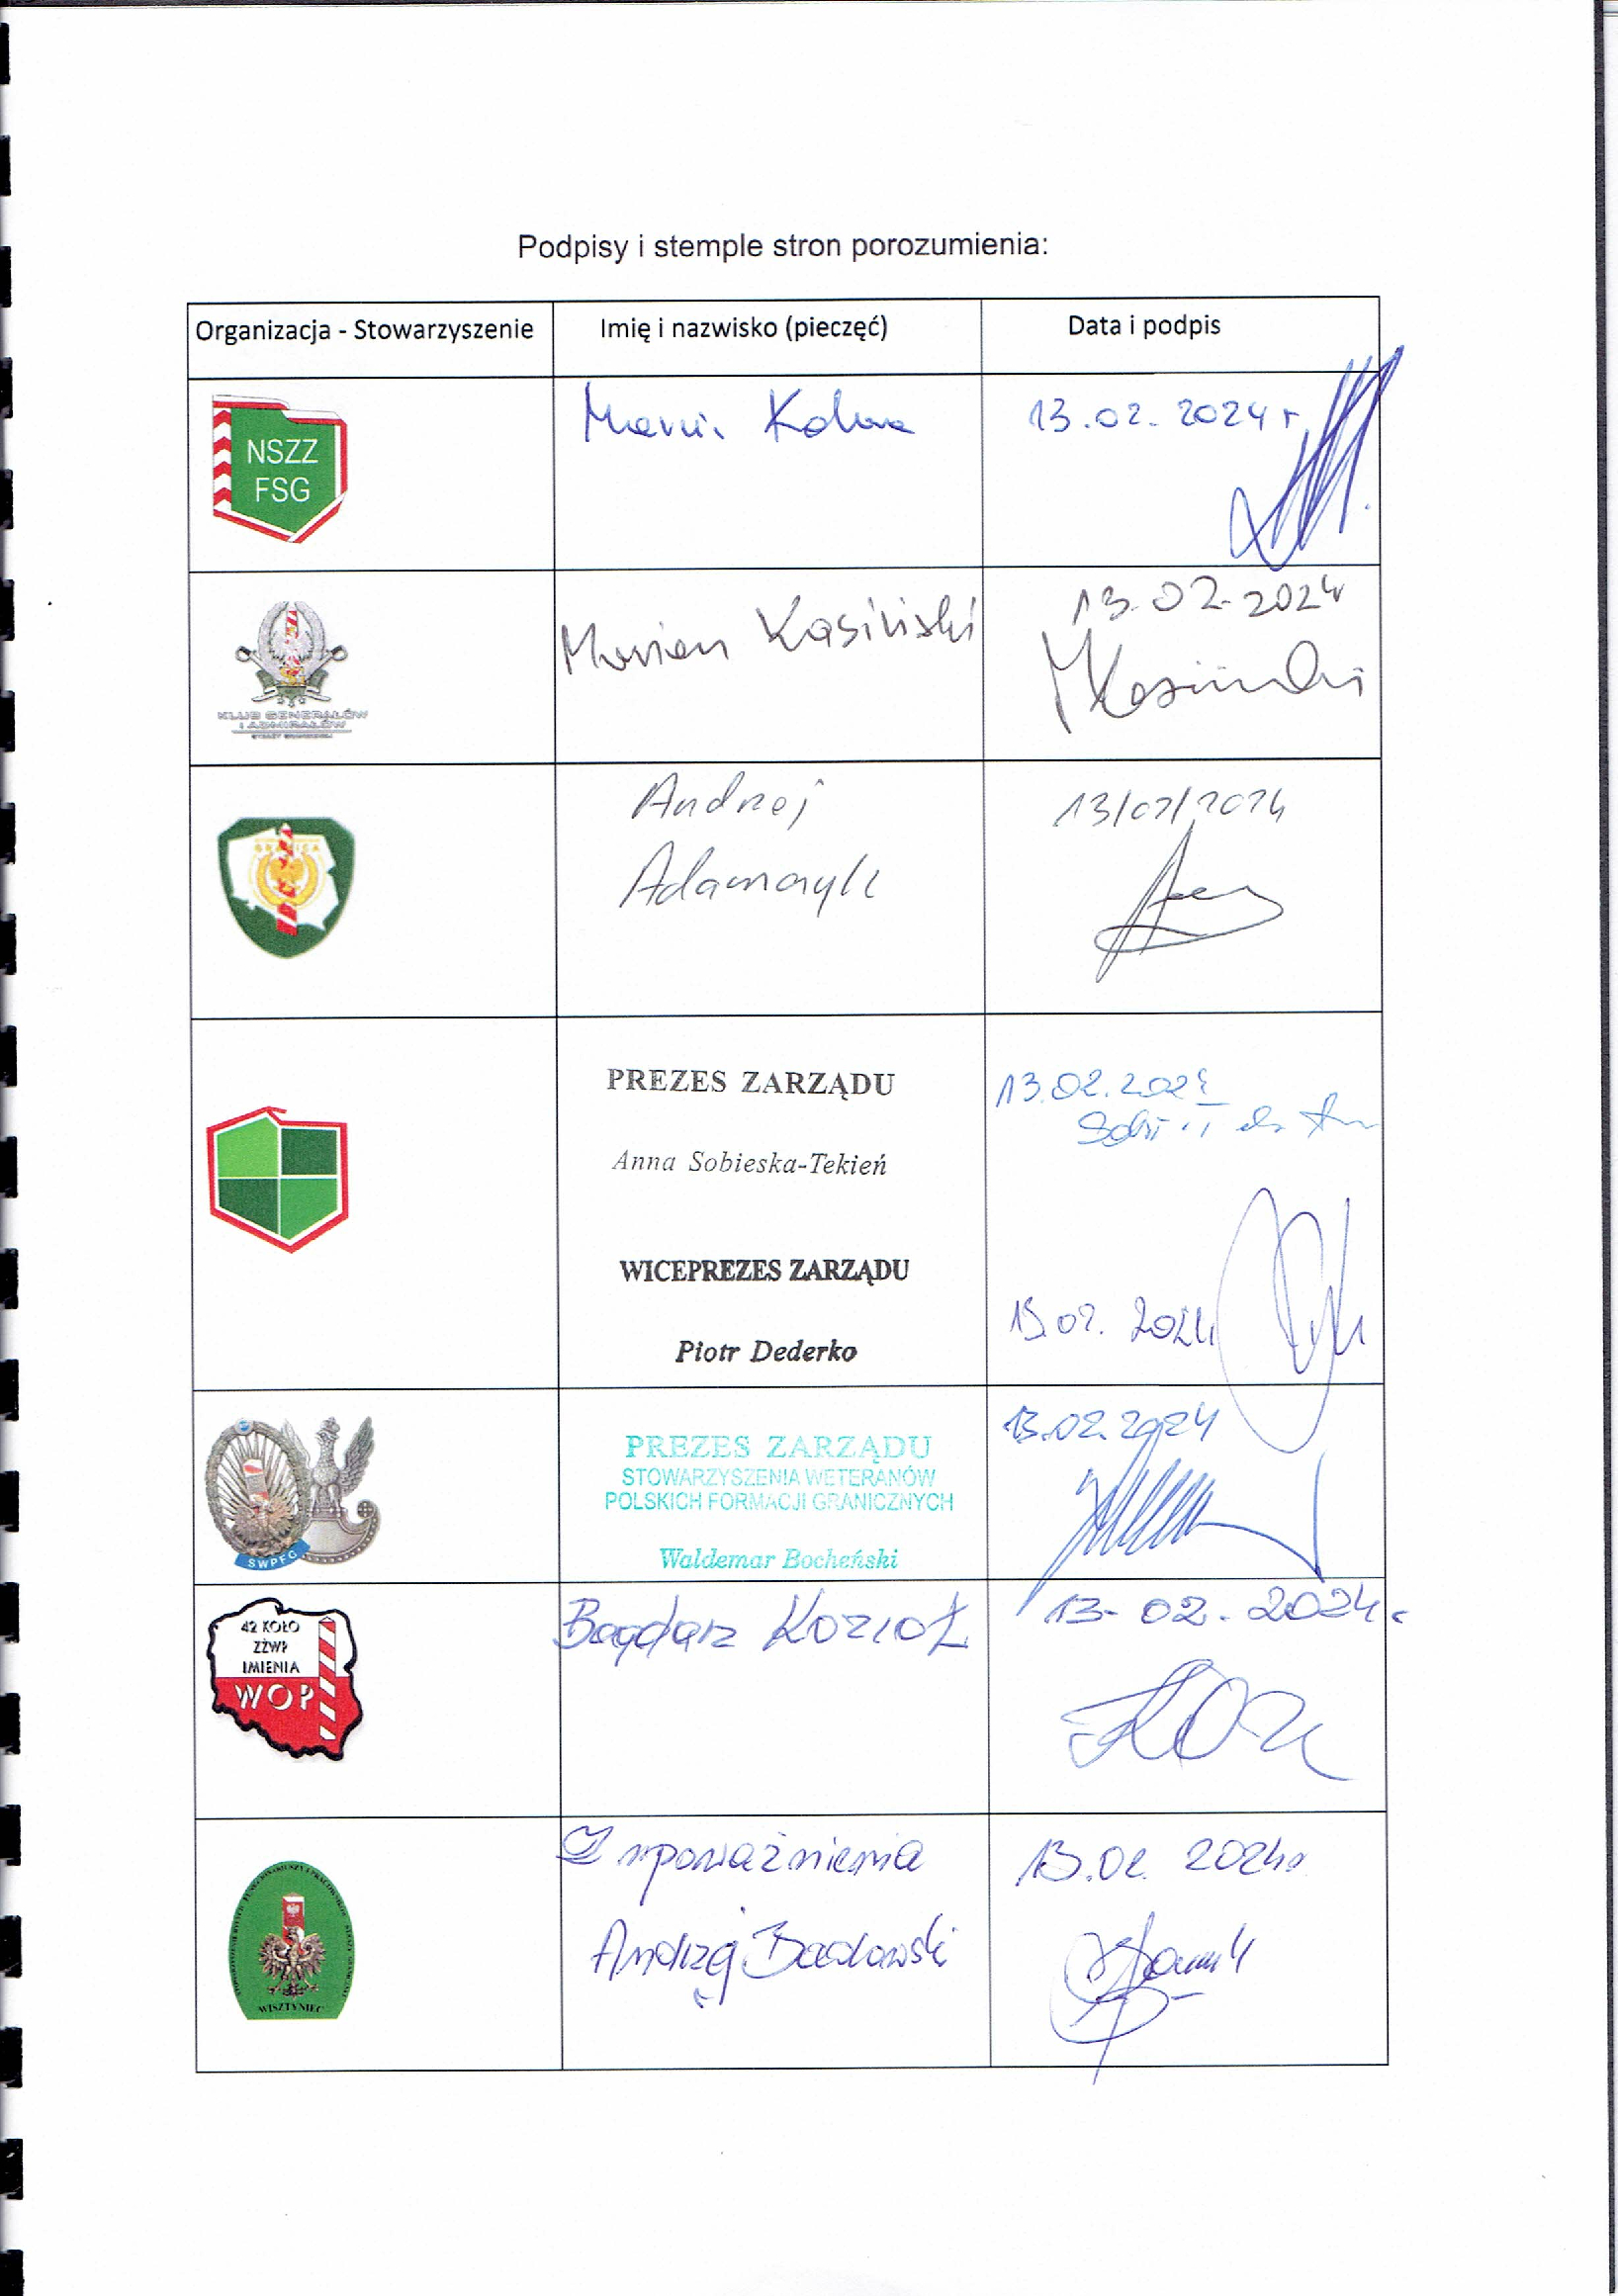 Podpisy i stemple stron porozumienia:
Organizacja - Stowarzyszenie
Imię i nazwisko (pieczęć)
Data i podpis
NSZZ
FSG
Marcin
13.02.2024 r.
KLUB GENERAŁÓW
I ADMIRAŁÓW
STRAŻY GRANICZNEJ
Marian Kasiński
13.02.2024
MKasiński
GRANICA
Andrzej
Adamczyk
13/02/2024
PREZES ZARZĄDU
13.02.2024
Anna Sobieska-Tekień
WICEPREZES ZARZĄDU
13.02.2024
Piotr Dederko
SWPFG
PREZES ZARZĄDU
STOWARZYSZENIA WETERANÓW
POLSKICH FORMACJI GRANICZNYCH
Waldemar Bocheński
13.02.2024
42 KOŁO
ZŻWP
IMIENIA
WOP
Bogdan KOZIOŁ
13-02.2024r
WISZTYNIEC
Z upoważnienia
Andrzej
13.02.2024r